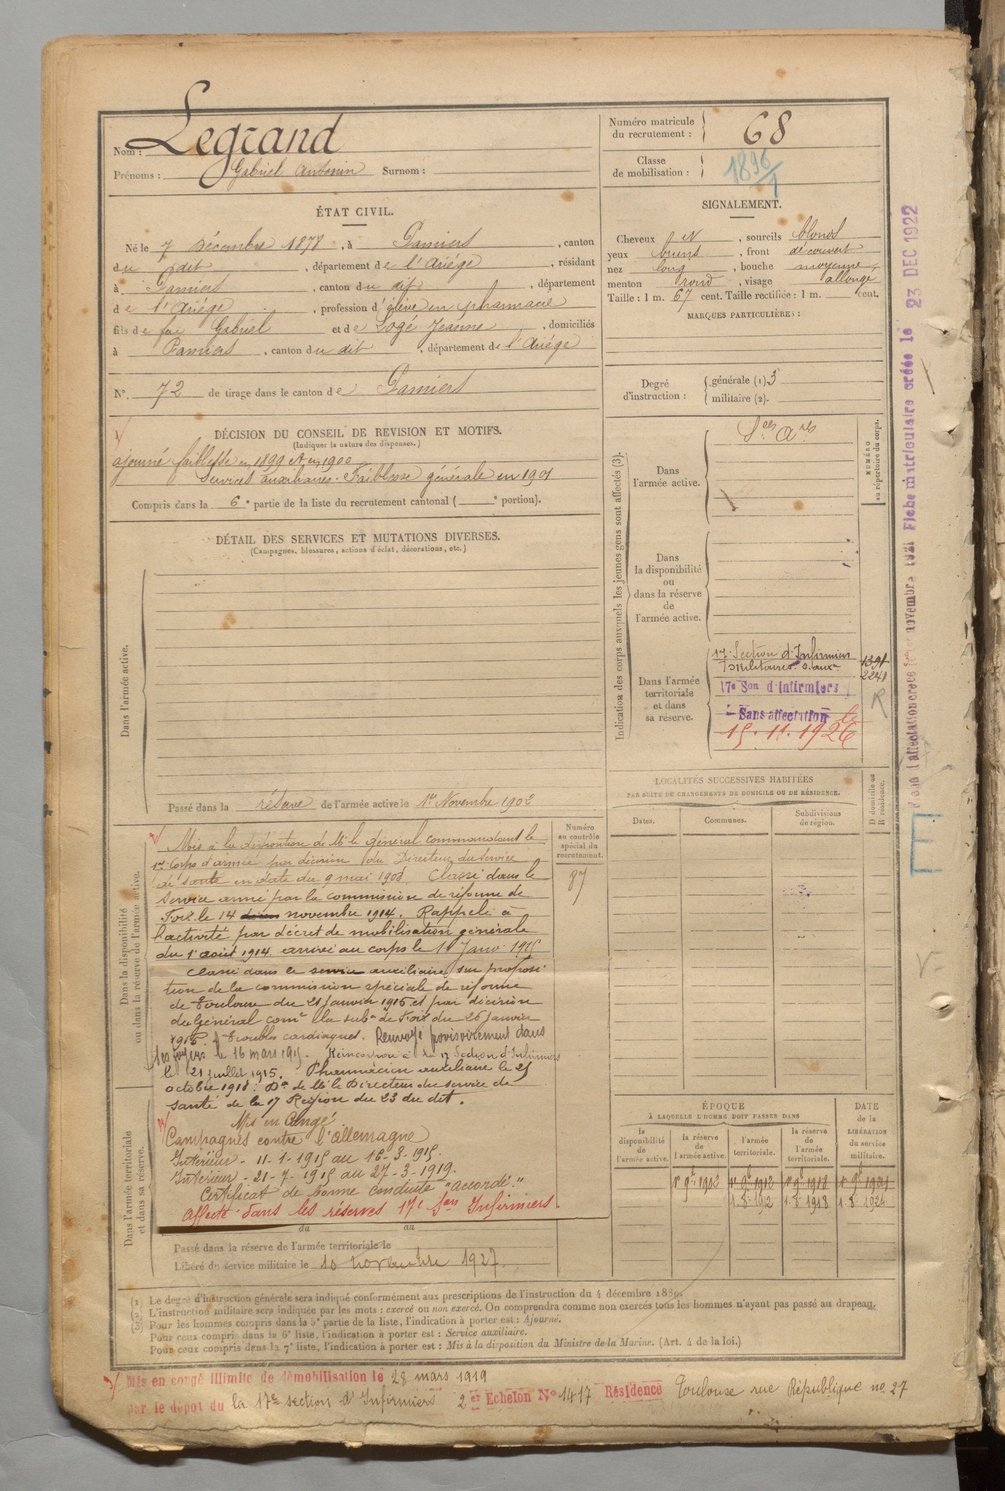 Nom : Legrand
Prénoms : Gabriel Antonin Surnom :
Numéro matricule du recrutement : 68
Classe de mobilisation : 1896/1
ÉTAT CIVIL.
Né le 7 Décembre 1878, à Pamiers, canton
du dit, département de l'Ariége, résidant
à Pamiers, canton du dit, département
de l'Ariége, profession d'élève en pharmacie
fils de feu Gabriel et de Logé Jeanne, domiciliés
à Pamiers, canton du dit, département de l'Ariége
N° 72 de tirage dans le canton de Pamiers
SIGNALEMENT.
Cheveux N, sourcils blonds
yeux bruns, front découvert
nez long, bouche moyenne
menton rond, visage allongé
Taille : 1 m. 67 cent. Taille rectifiée : 1 m. cent.
MARQUES PARTICULIÈRES :
Degré d'instruction : générale (1) 3
militaire (2).
DÉCISION DU CONSEIL DE REVISION ET MOTIFS.
(Indiquer la nature des dispenses.)
ajourné faiblesse en 1899 et en 1900
Services auxiliaires. Faiblesse générale en 1901
Compris dans la 6e partie de la liste du recrutement cantonal ( e portion).
DÉTAIL DES SERVICES ET MUTATIONS DIVERSES.
(Campagnes, blessures, actions d'éclat, décorations, etc.)
Dans l'armée active.
Passé dans la réserve de l'armée active le 1er Novembre 1902
Indication des corps auxquels les jeunes gens sont affectés (3).
Dans l'armée active.
NUMÉRO au répertoire du corps.
Dans la disponibilité ou dans la réserve de l'armée active.
Dans l'armée territoriale et dans sa réserve.
17e Section d'Infirmiers
militaires s. aux
17e Son d'Infirmiers
Sans affectation le
15.11.1926
1391
2241
R
23 DEC 1922
Fiche matriculaire créée le
novembre 1921
LOCALITÉS SUCCESSIVES HABITÉES
PAR SUITE DE CHANGEMENTS DE DOMICILE OU DE RÉSIDENCE.
Dates.
Communes.
Subdivisions de région.
D domicile ou R résidence.
Numéro au contrôle spécial du recrutement.
87
Dans la disponibilité ou dans la réserve de l'armée active.
Mis à la disposition de Mr le général commandant le
corps d'armée par décision du Directeur du Service
de santé en date du 9 mai 1903. Classé dans le
service armé par la commission de réforme de
Foix le 14 novembre 1914. Rappelé à
l'activité par décret de mobilisation générale
du 1er août 1914. arrivé au corps le 11 Janv. 1915
Classé dans le service auxiliaire sur proposi-
tion de la commission spéciale de réforme
de Toulouse du 21 janvier 1915 et par décision
du Général comt la subon de Foix du 26 janvier
1915. Troubles cardiaques. Renvoyé provisoirement dans
ses foyers le 16 mars 1915. Réincorporé à la 17 Section d'Infirmiers
le 21 juillet 1915. Pharmacien auxiliaire le 25
octobre 1918. Don de Mr le Directeur du service de
santé de la 17 Région du 23 du dit.
Mis en Congé
Campagnes contre l'Allemagne
Intérieur - 11-1-1915 au 16-3-1915.
Intérieur - 21-7-1915 au 27-3-1919.
Certificat de bonne conduite "accordé."
Affecté dans les réserves 17e Son Infirmiers
Dans l'armée territoriale et dans sa réserve.
du au
Passé dans la réserve de l'armée territoriale le
Libéré du service militaire le 10 novembre 1927.
ÉPOQUE
À LAQUELLE L'HOMME DOIT PASSER DANS
la disponibilité de l'armée active.
la réserve de l'armée active.
l'armée territoriale.
la réserve de l'armée territoriale.
DATE de la LIBÉRATION du service militaire.
1er 9bre 1902
1er 9bre 1912
1er 9bre 1918
(1) Le degré d'instruction générale sera indiqué conformément aux prescriptions de l'instruction du 4 décembre 1889.
(2) L'instruction militaire sera indiquée par les mots : exercé ou non exercé. On comprendra comme non exercés tous les hommes n'ayant pas passé au drapeau.
(3) Pour les hommes compris dans la 5e partie de la liste, l'indication à porter est : Ajourné.
Pour ceux compris dans la 6e liste, l'indication à porter est : Service auxiliaire.
Pour ceux compris dans la 7e liste, l'indication à porter est : Mis à la disposition du Ministre de la Marine. (Art. 4 de la loi.)
Mis en congé illimité de démobilisation le 28 mars 1919
par le dépôt du la 17e section d'Infirmiers 2e Echelon N° 1417 Résidence Toulouse rue République no. 27